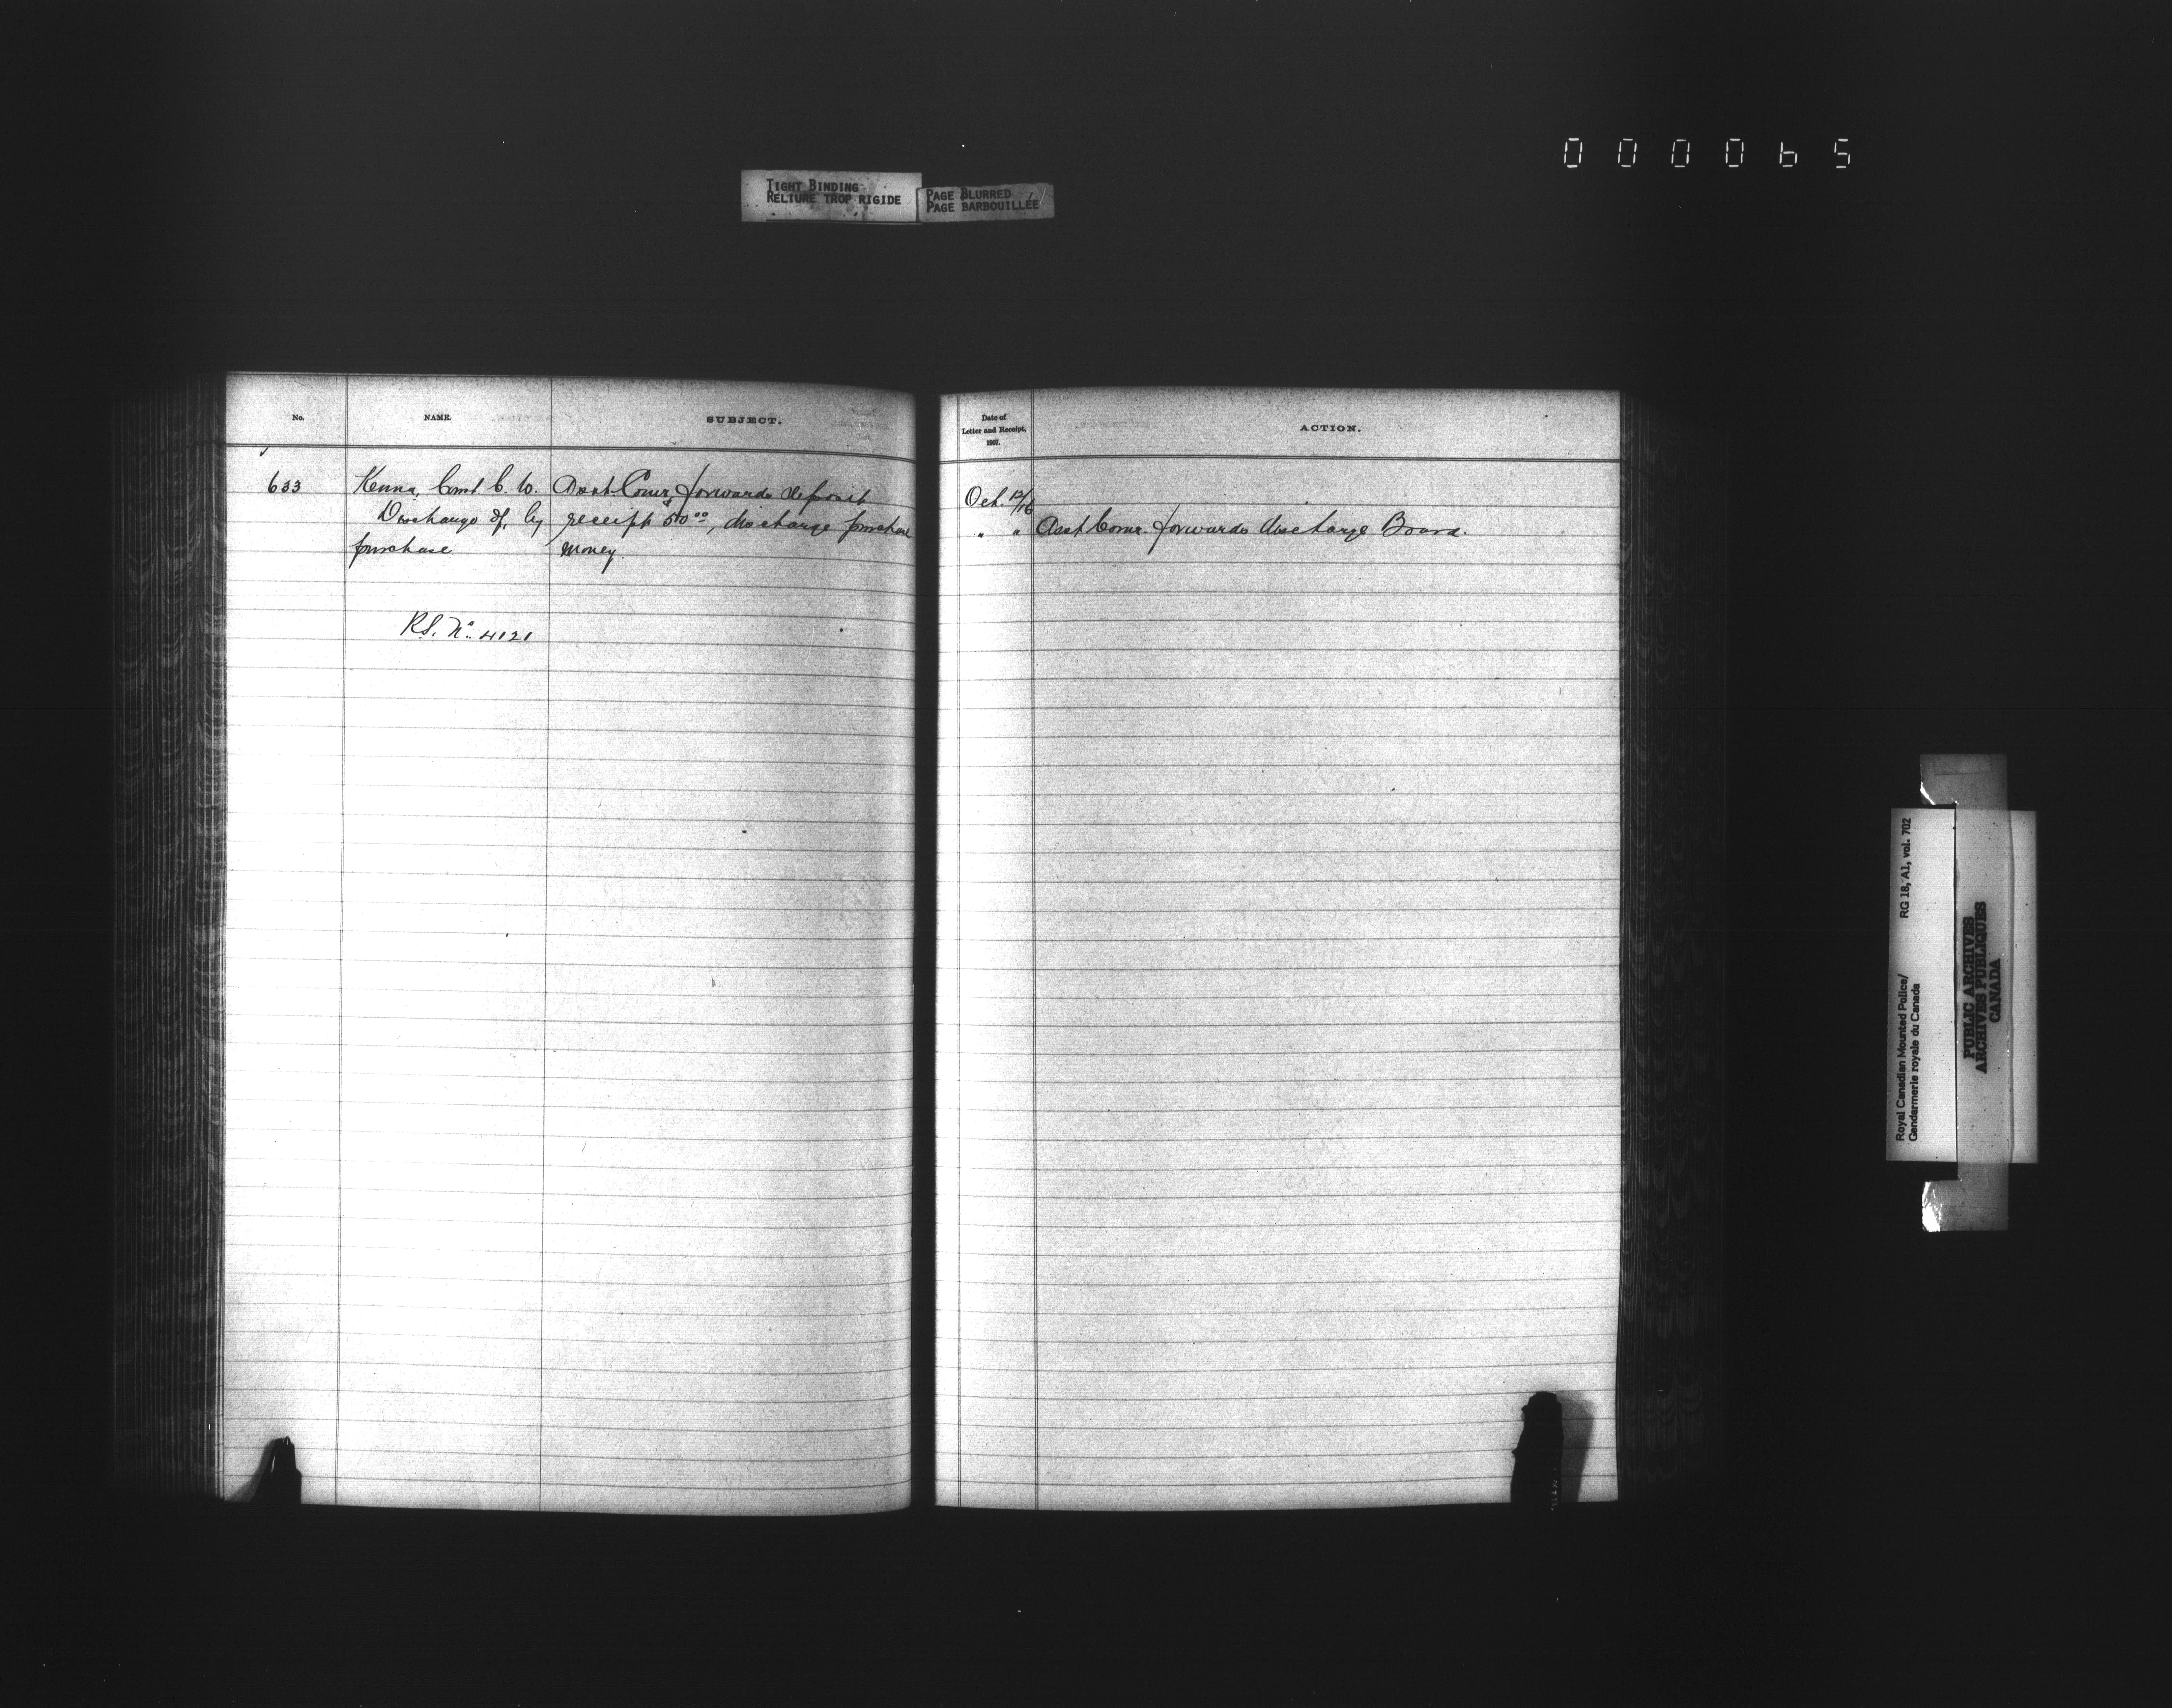 000065
TIGHT BINDING
RELIURE TROP RIGIDE
PAGE BLURRED
PAGE BARBOUILLÉE
No.
NAME.
SUBJECT.
633
Kenna, Const. C. W.
Discharge of, by
purchase
Asst. Comr. forwards deposit
receipt $50.00, discharge purchase
money.
RS. No. 4121
Date of
Letter and Receipt,
1907.
ACTION.
Oct. 12/16
" " Asst Comr. forwards discharge Board.
Royal Canadian Mounted Police/ RG 18, A1, vol. 702
Gendarmerie royale du Canada
PUBLIC ARCHIVES
ARCHIVES PUBLIQUES
CANADA